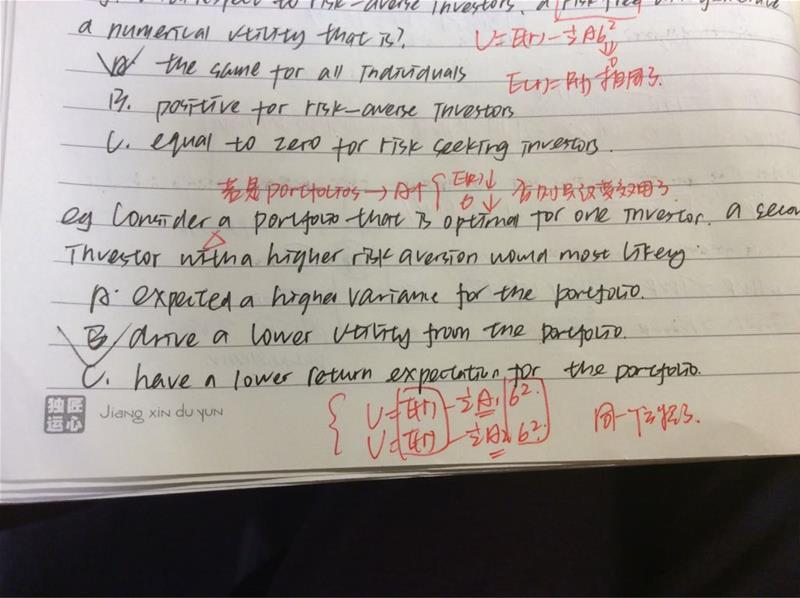 with respect to risk-averse investors, a risk free will generate
a numerical utility that is?
U=E(r)-½Aб²
0
A. the same for all individuals
E(r)=R(f)
B. positive for risk-averse investors
C. equal to zero for risk seeking investors.
若是portfolios→A↑{E(R)↓ б↓ 否则只议
eg Consider a portfolio that is optimal for one investor. a secon
Investor with a higher risk aversion would most likely:
A. expected a higher variance for the portfolio.
B. drive a lower utility from the portfolio.
C. have a lower return expectation for the portfolio.
U=E(r)-½A₁б².
U=E(r)-½A₂б².
同一个
独匠运心 Jiang xin du yun